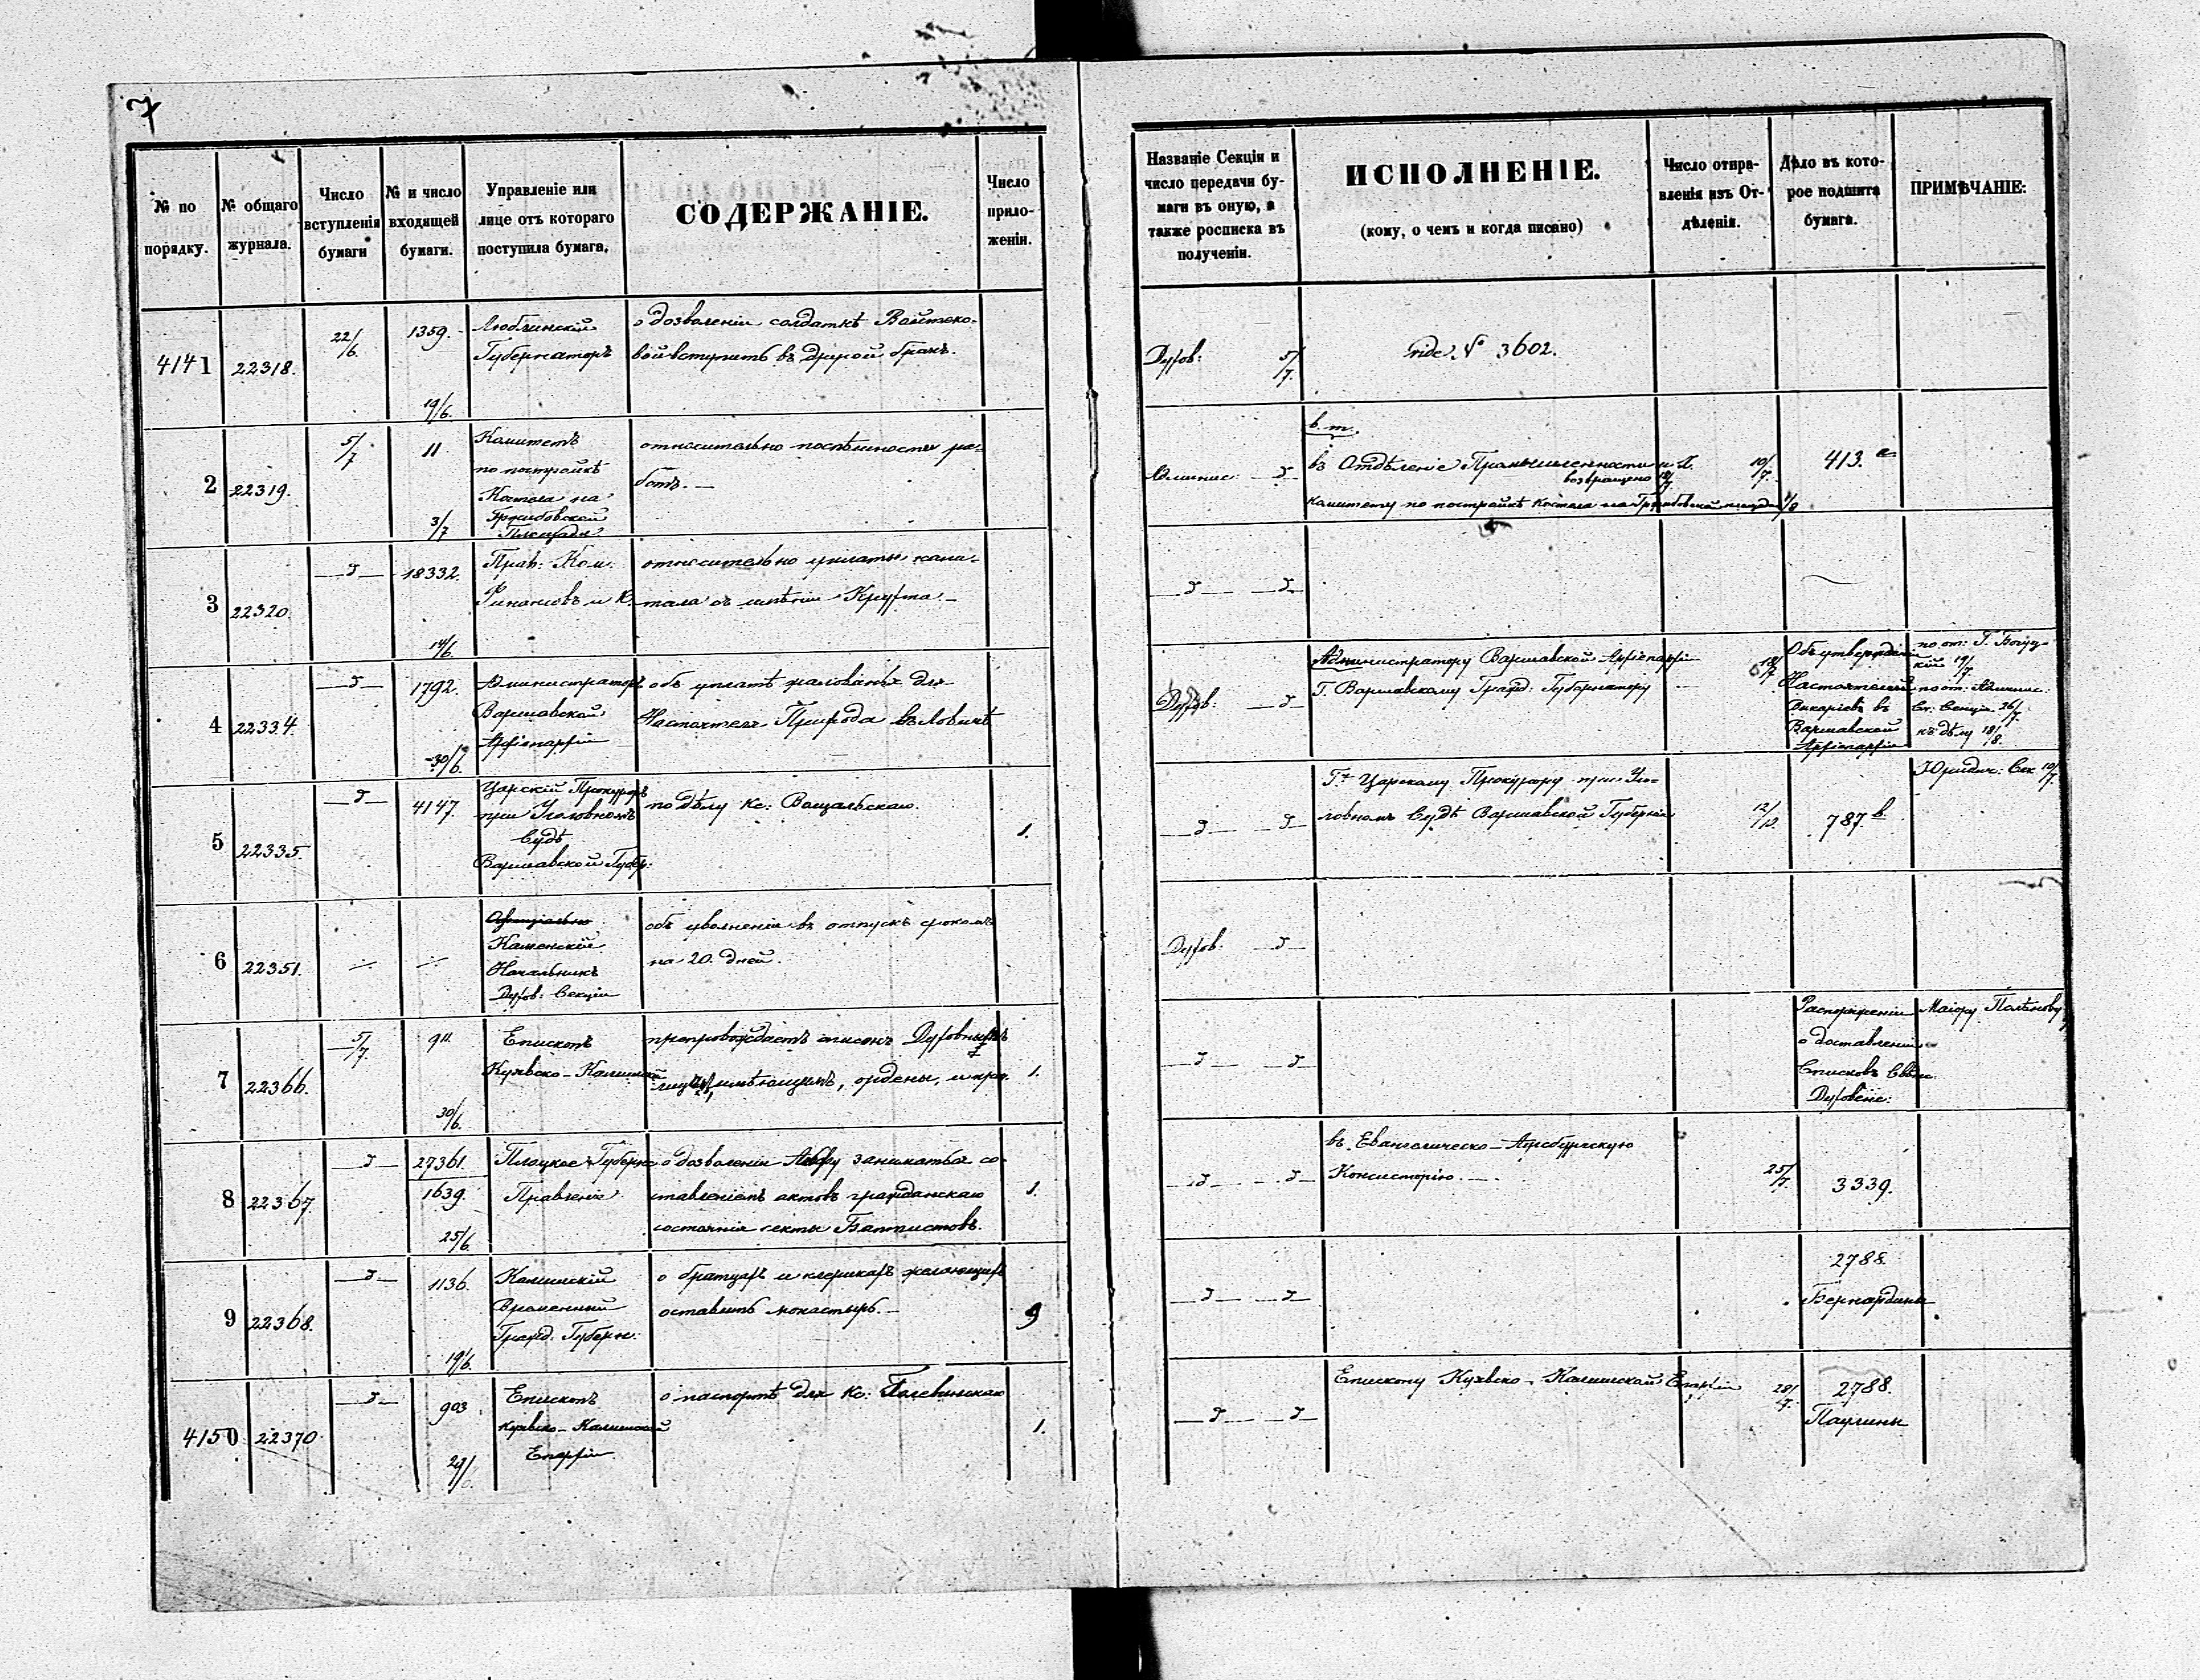 7
№ по порядку.
№ общаго журнала.
Число вступленія бумаги
№ и число входящей бумаги.
Управленіе или лице отъ котораго поступила бумага.
СОДЕРЖАНІЕ.
Число прило-
женіи.
Названіе Секціи и
число передачи бу-
маги въ оную, а
также росписка въ
полученіи.
ИСПОЛНЕНІЕ.
(кому, о чемъ и когда писано)
Число отпра-
вленія изъ От-
дѣленія.
Дѣло въ кото-
рое подшита
бумага.
ПРИМѢЧАНІЕ:
4141
22318.
22/6.
1359.
19/6.
Люблинскій
Губернаторъ
о дозволеніи солдаткѣ Войтеко-
вой вступить въ другой бракъ.
Духов: 5/7.
vide № 3602.
2
22319.
5/7
11
3/7
Комитетъ
по постройкѣ
Костела на
Гржибовской
Площади
относительно поспѣшности ра-
ботъ. —
5
в. т.
въ Отдѣленіе Промышленности и
возвращено
Комитету по постройкѣ Костела на Гржибовской площади 1/8
10/7.
413. а
3
22320.
18332.
14/6.
Прав: Ком.
Финансовъ и К.
относительно уплаты капи-
тала съ имѣнія
4
22334.
1792.
30/6.
Администраторъ
Варшавской
Архіепархіи
объ уплатѣ жалованья для
Настоятеля въ Ловичѣ
Духов:
Администратору Варшавской Архіепархіи
Г. Варшавскому Гражд: Губернатору
18/7
Объ утвержденіи
Настоятелей
Викаріевъ въ
Варшавской
Архіепархіи
по от: Г.
19/7.
по от: Админис:
Ст. Секціи 26/7.
къ дѣлу 18/8.
5
22335.
4147.
Царскій Прокуроръ
при Уголовномъ
Судѣ
Варшавской Губер:
по дѣлу Кс:
1.
Гну Царскому Прокурору при Уго-
ловномъ Судѣ Варшавской Губерніи
12/12
787. в
Юридич: Сек 10/7.
6
22351.
Каменскій
Начальникъ
Духов: Секціи
объ увольненіи въ отпускъ срокомъ
на 20. дней.
Духов:
7
22366.
5/7.
911
30/6.
Епископъ
Куявско-Калишскій
препровождаетъ списокъ Духовнымъ
лицамъ, имѣющимъ, ордены, и проч.
1.
Распоряженіи
о доставленіи
Списковъ
Маіору Полѣнову
8
22367.
27361.
1639.
25/6.
Плоцкое Губернс
Правленіе
о дозволеніи заниматься со-
ставленіемъ актовъ гражданскаго
состоянія секты Баптистовъ.
1.
въ Евангелическо-Аугсбургскую
Консисторію. —
25/7.
3339.
9
22368.
1136.
19/6.
Калишскій
Временный
Гражд. Губерн:
о братцахъ и клерикахъ желающихъ
оставить монастырь. —
9
2788.
Бернардины
4150
22370
903
29/
Епископъ
Куявско-Калишской
Епархіи
о паспортѣ для Кс:
1.
Епископу Куявско-Калишской Епархіи
28/7.
2788.
Паулины